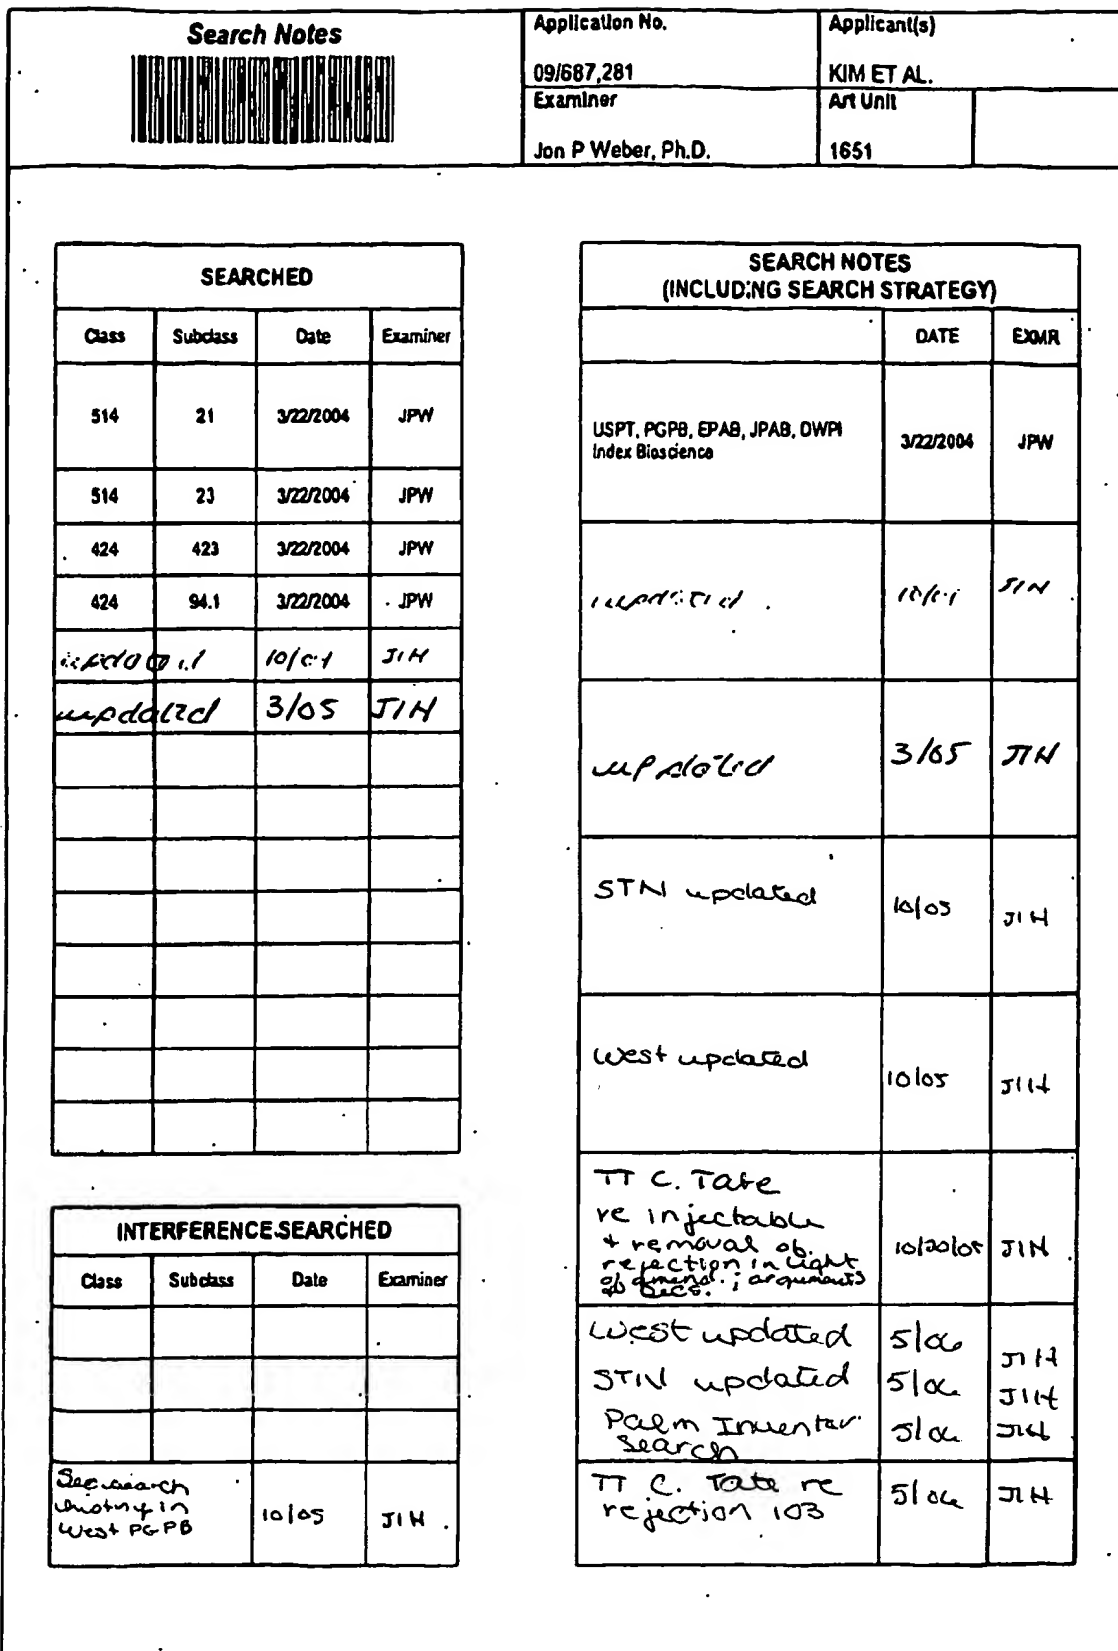 Search Notes
Application No.
09/687,281
Applicant(s)
KIM ET AL.
Examiner
Jon P Weber, Ph.D.
Art Unit
1651
SEARCHED
Class Subclass Date Examiner
514 21 3/22/2004 JPW
514 23 3/22/2004 JPW
424 423 3/22/2004 JPW
424 94.1 3/22/2004 JPW
updated 10/04 JIH
updated 3/05 JIH
INTERFERENCE SEARCHED
Class Subclass Date Examiner
See search
history in
West PGPB
10/05 JIH
SEARCH NOTES
(INCLUDING SEARCH STRATEGY)
DATE EXMR
USPT, PGPB, EPAB, JPAB, DWPI
Index Bioscience
3/22/2004 JPW
updated 10/04 JIH
updated 3/05 JIH
STN updated 10/05 JIH
West updated 10/05 JIH
TT C. Tate
re injectable
+ removal ob.
rejection in light
of amend. ; arguments
of Decs.
10/20/05 JIH
West updated 5/06 JIH
STN updated 5/06 JIH
Palm Inventor
Search
5/06 JIH
TT C. Tate re
rejection 103
5/06 JIH